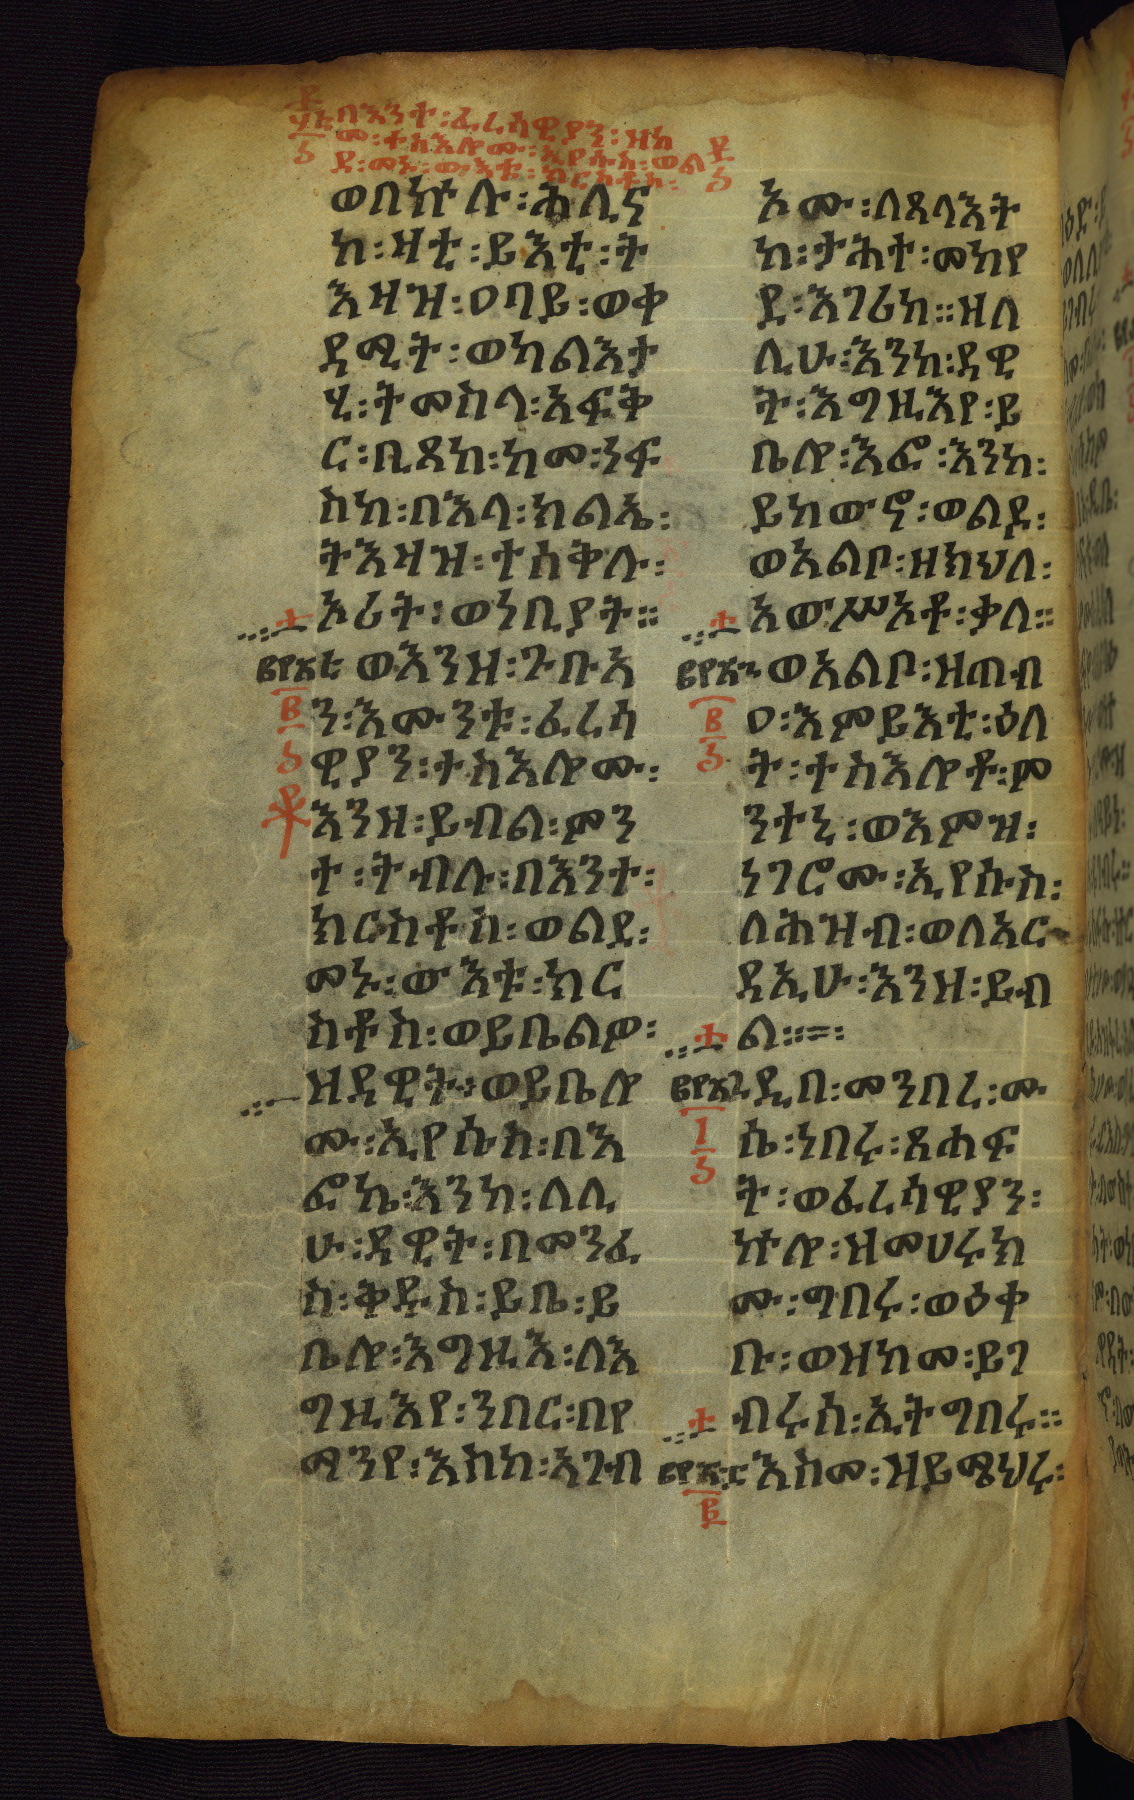 በእንተ፡ፈሪሳዊያን፡ዘከ
መ፡ተስእሎሙ፡ኢየሱስ፡ወል
ደ፡መኑ፡ውእቱ፡ክርስቶስ፡
ወበኵሉ፡ሕሊና
ከ፡ዛቲ፡ይእቲ፡ት
እዛዝ፡ዐባይ፡ወቀ
ዳሚት፡ወካልእታ
ሂ፡ትመስላ፡አፍቅ
ር፡ቢጸከ፡ከመ፡ነፍ
ስከ፡በእላ፡ክልኤ፡
ትእዛዝ፡ተሰቅሉ፡
ኦሪት፡ወነቢያት።
ወእንዘ፡ጉቡእ
ን፡እሙንቱ፡ፈሪሳ
ዊያን፡ተስእሎሙ፡
እንዘ፡ይብል፡ምን
ተ፡ትብሉ፡በእንተ፡
ክርስቶስ፡ወልደ፡
መኑ፡ውእቱ፡ክር
ስቶስ፡ወይቤልዎ፡
ዘዳዊት፡ወይቤሎ
ሙ፡ኢየሱስ፡በእ
ፎኬ፡እንከ፡ለሊ
ሁ፡ዳዊት፡በመንፈ
ስ፡ቅዱስ፡ይቤ፡ይ
ቤሎ፡እግዚእ፡ለእ
ግዚእየ፡ንበር፡በየ
ማንየ፡እስከ፡አገብ
ኦሙ፡ለጸላእት
ከ፡ታሕተ፡መከየ
ደ፡እገሪከ።ዘለ
ሊሁ፡እንከ፡ዳዊ
ት፡እግዚእየ፡ይ
ቤሎ፡እፎ፡እንከ፡
ይከውኖ፡ወልደ፡
ወአልቦ፡ዘክህለ፡
አውሥኦቶ፡ቃለ።
ወአልቦ፡ዘጠብ
ዐ፡እምይእቲ፡ዕለ
ት፡ተስእሎቶ፡ም
ንተኒ፡ወእምዝ፡
ነገሮሙ፡ኢየሱስ፡
ለሕዝብ፡ወለአር
ዳኢሁ፡እንዘ፡ይብ
ል።=፡
ዲበ፡መንበረ፡ሙ
ሴ፡ነበሩ፡ጸሐፍ
ት፡ወፈሪሳዊያን፡
ኵሎ፡ዘመሀሩክ
ሙ፡ግበሩ፡ወዕቀ
ቡ፡ወዝከመ፡ይገ
ብሩሰ፡ኢትግበሩ።
እስመ፡ዘይሜህሩ፡